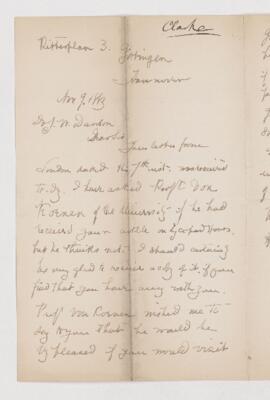 Clarke
Ritterplan 3. Göttingen
Hannover
Nov 9. 1883
Dr J. W. Dawson
Dear Sir
Your letter from
London dated the 7th inst. was received
to-day. I have asked Prof. Von
Koenen of the University if he had
received your article on
but he thinks not. I should certainly
be very glad to receive a copy of it if you
find that you have any with you.
Prof. Von Koenen wished me to
say to you that he would be
pleased if you would visit